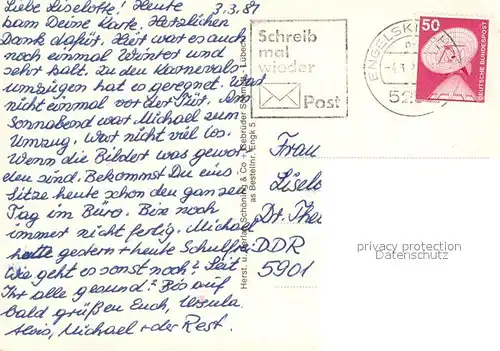 Liebe Liselotte! Heute 3.3.87
kam Deine Karte. Herzlichen
Dank dafür. Hier war es auch
noch einmal Winter und
sehr kalt. Zu den Karnevals-
umzügen hat es geregnet. War
nicht einmal vor der Tür. Am
Sonnabend war Michael zum
Umzug. War nicht viel los.
Wenn die Bilder was gewor-
den sind. Bekommst Du eins.
Sitze heute schon den ganzen
Tag im Büro. Bin noch
immer nicht fertig. Michael
hatte gestern + heute Schulfrei.
Wie geht es sonst noch? Seid
Ihr alle gesund? Bis auf
bald grüßen Euch, Ursula
Alois, Michael + der Rest.
Herst. u. Verlag Schöning & Co + Gebrüder Schmidt - Lübeck
as Bestellnr. Engk 5
Schreib
mal
wieder
Post
ENGELSKI
52
50
DEUTSCHE BUNDESPOST
Frau
Liselo
Dr. Theo
DDR
5901
privacy protection
Datenschutz